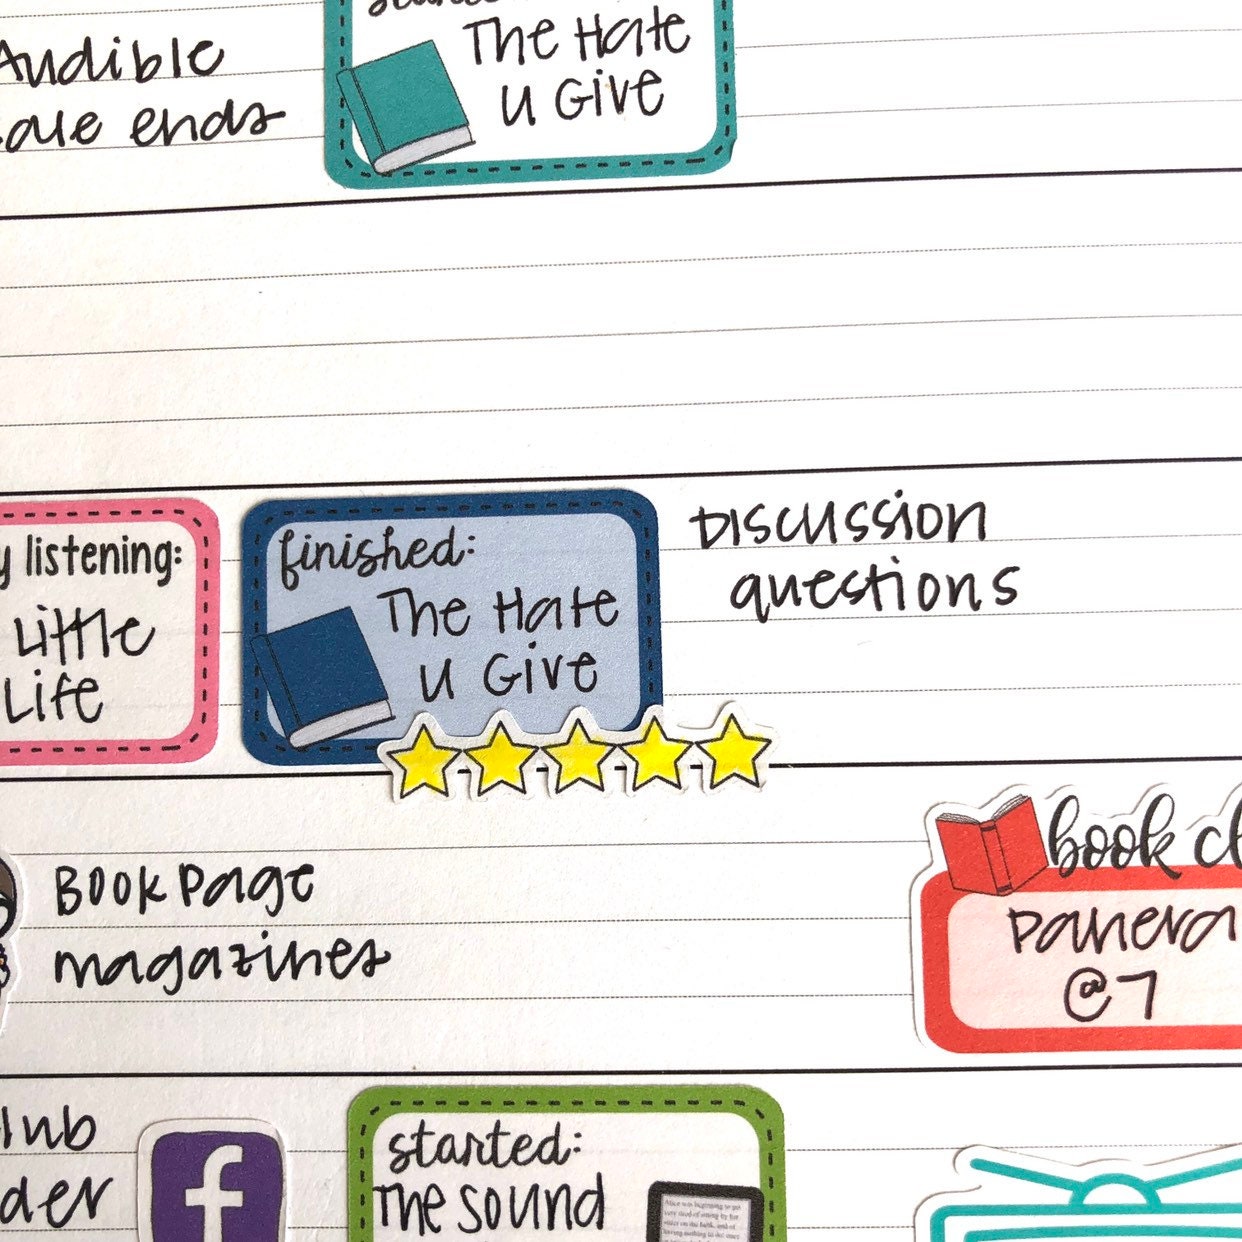 The Hate
U Give
Audible
sale ends
y listening:
Little
Life
finished:
The Hate
U Give
Discussion
questions
Book Page
magazines
book cl
Panera
@7
lub
der
f
started:
The Sound